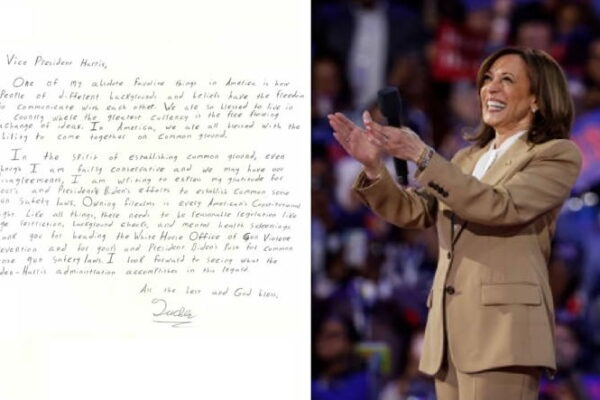 Vice President Harris,
One of my absolute favorite things in America is how
People of different backgrounds and beliefs have the freedom
to communicate with each other. We are so blessed to live in
country where the greatest currency is the free flowing
xchange of ideas. In America, we are all blessed with the
bility to come together on common ground.
In the spirit of establishing common ground, even
hough I am fairly conservative and we may have our
isagreements, I am writing to extend my gratitude for
our's and President Biden's efforts to establish common sense
un safety laws. Owning firearms is every American's Constitutional
ight. Like all things, there needs to be reasonable regulation like
ge restriction, background checks, and mental health screenings
ank you for heading the White House Office of Gun Violence
evention and for yours and President Biden's push for common
nse gun safety laws. I look forward to seeing what the
den-Harris administration accomplishes in this regard.
All the best and God bless,